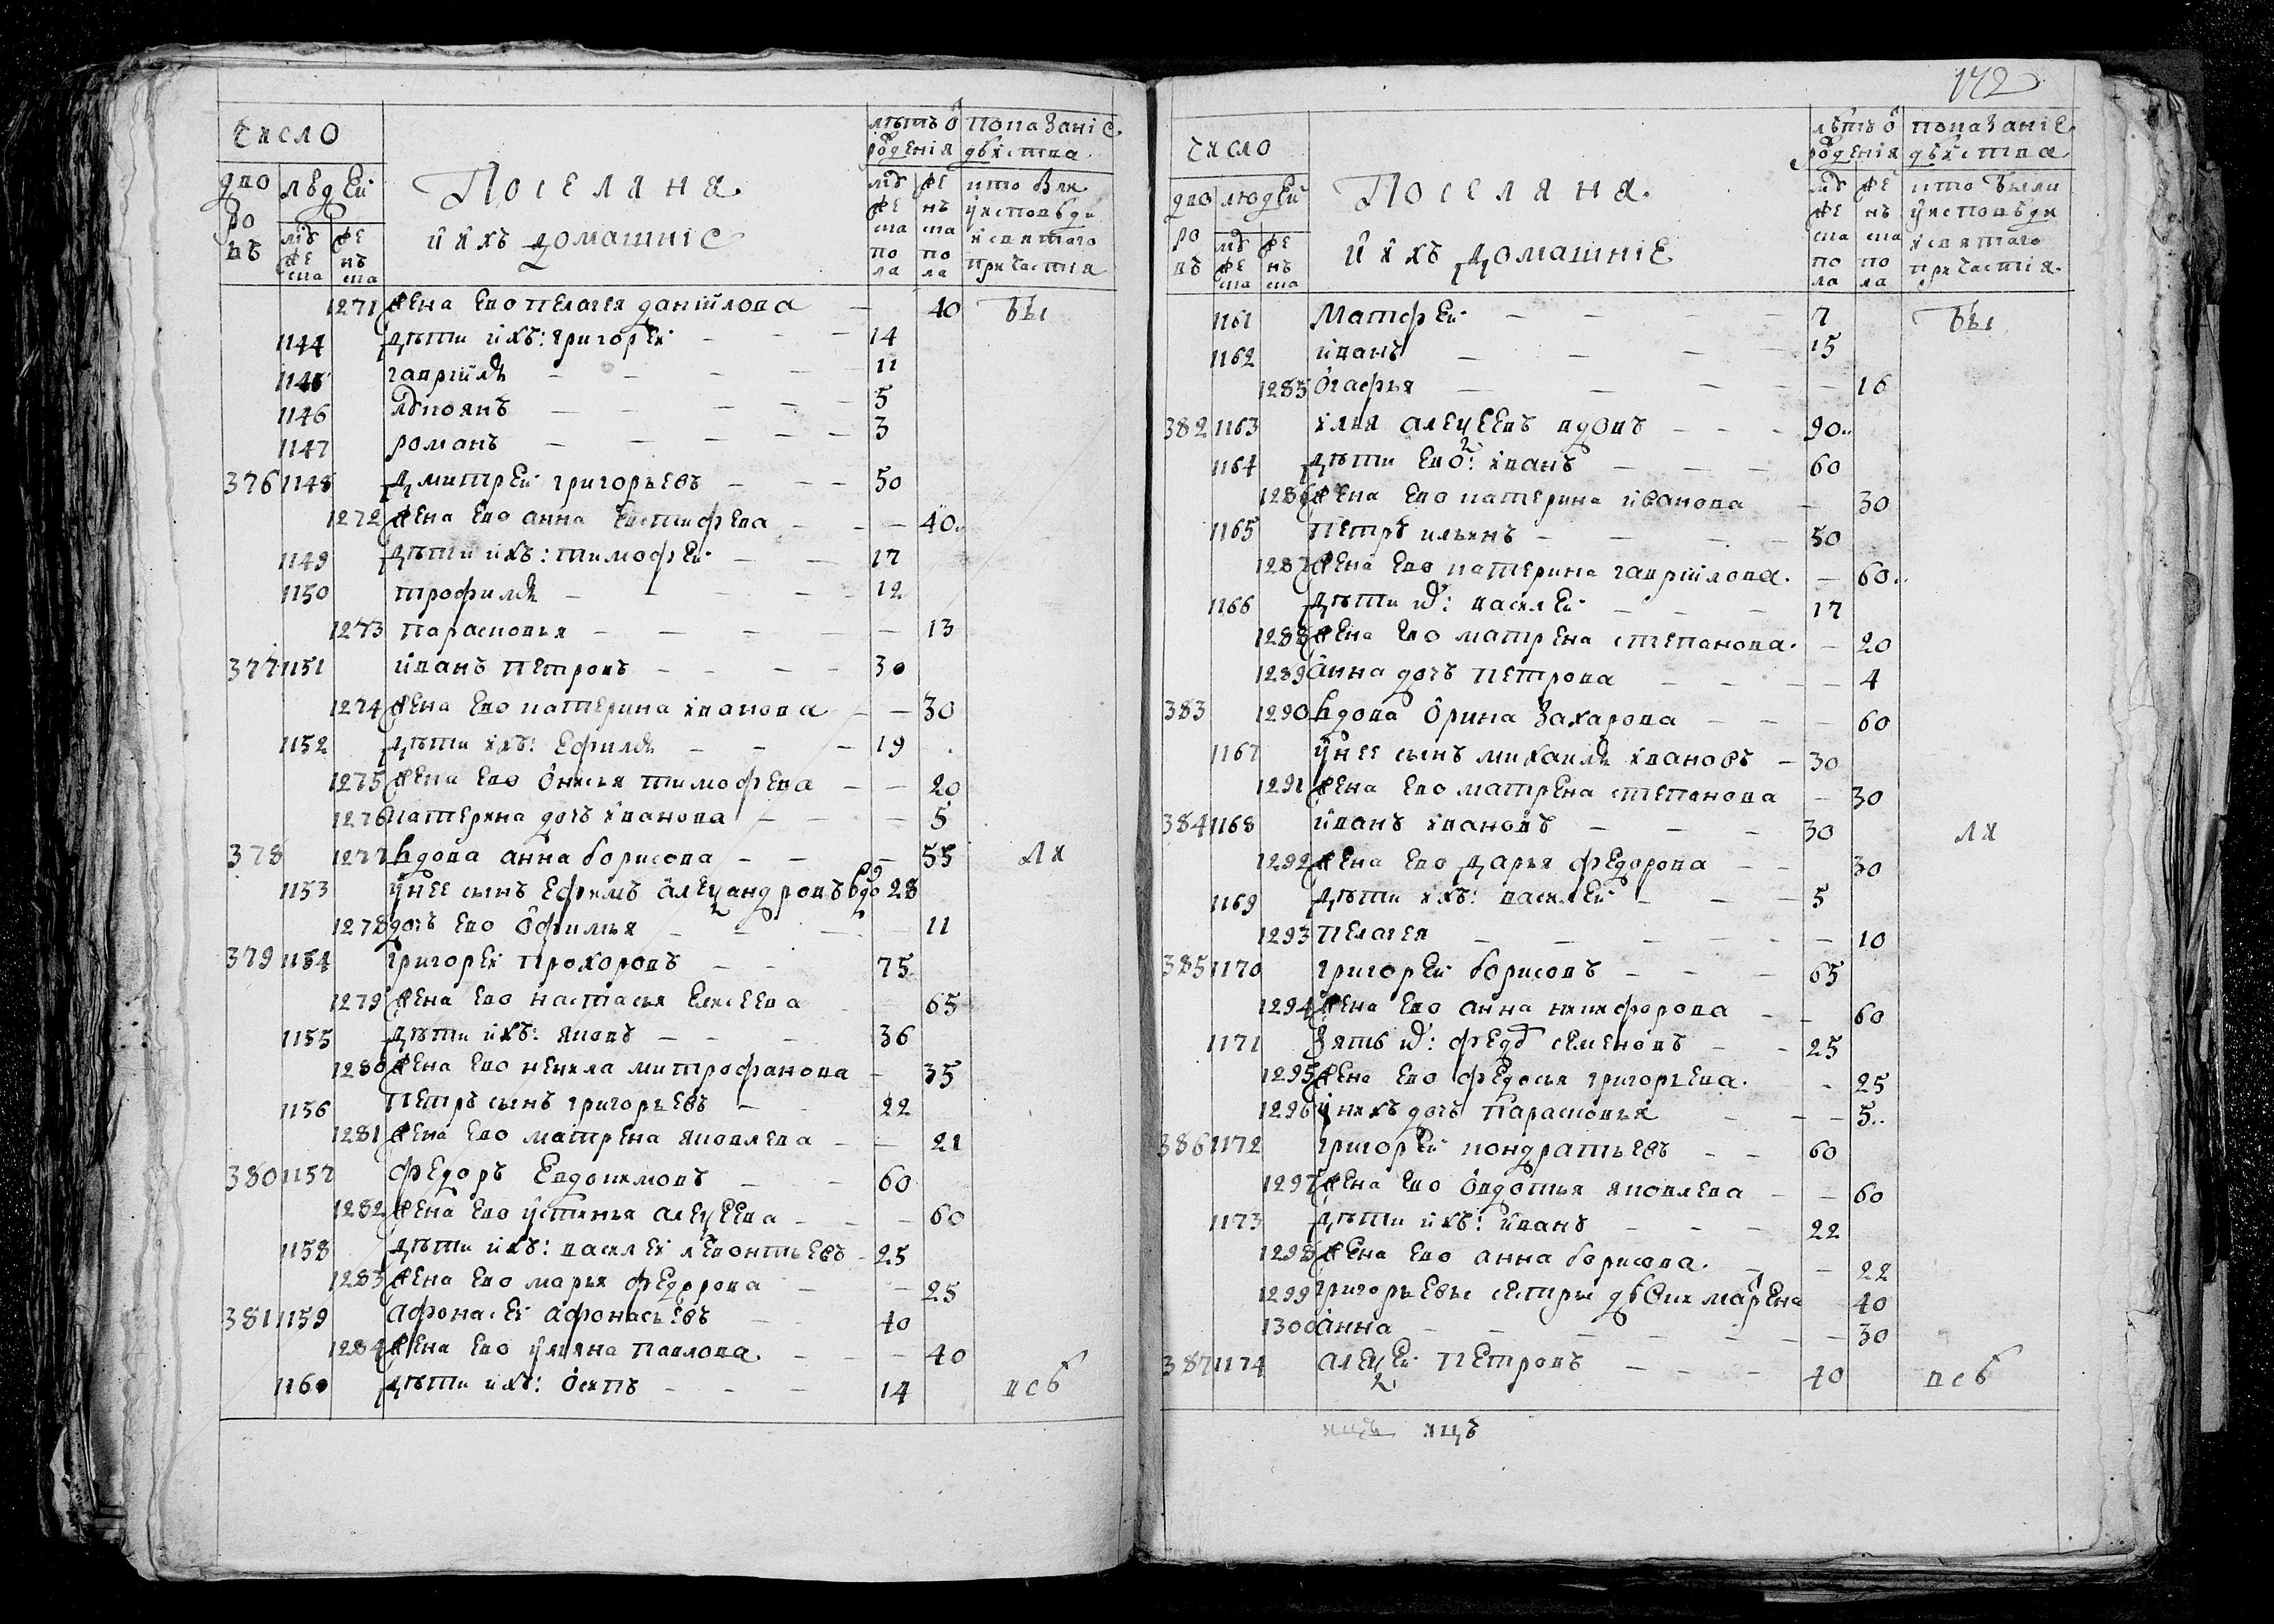 число
дворовъ
людей
мужеска
женска
Поселяня
и ихъ домашніе
лѣтъ ѿ рожденія
мужеска пола
женска пола
показаніе дѣйства
кто были у исповѣди и святаго причастія
1271 жена ево пелагея даніилова — 40 бы
1144 дѣти ихъ: григорей — — 14
1145 гавріилъ — — — 11
1146 лукоянъ — — — 5
1147 романъ — — — 3
376 1148 дмитрей григорьевъ — — 50
1272 жена ево анна евстифѣева — — 40
1149 дѣти ихъ: тимофей — — 17
1150 трофилъ — — — 12
1273 парасковья — — — 13
377 1151 иванъ петровъ — — — 30
1274 жена ево катерина иванова — — 30
1152 дѣти ихъ: ефилъ — — — 19
1275 жена ево онисья тимофѣева — — 20
1276 катерина дочь иванова — — — 5
378 1277 вдова анна борисова — — — 55 ли
1153 у нее сынъ ефимъ алеѯандровъ вдо 28
1278 дочь ево офимья — — — 11
379 1154 григорей прохоровъ — — 75
1279 жена ево настасья елисеева 65
1155 дѣти ихъ: яковъ — — — 36
1280 жена ево ненила митрофанова — 35
1156 петръ сынъ григорьевъ — 22
1281 жена ево матрена яковлева — — 21
380 1157 федоръ евдокимовъ — — 60
1282 жена ево устинья алеѯеева — — 60
1158 дѣти ихъ: василей леонтьевъ — 25
1283 жена ево марья федорова — — 25
381 1159 афонасей афонасьевъ — — 40
1284 жена ево ульяна павлова — — — 40
1160 дѣти ихъ: осипъ — — — 14 исб
172
число
дворовъ
людей
мужеска
женска
Поселяня
и ихъ домашніе
лѣтъ ѿ рожденія
мужеска пола
женска пола
показаніе дѣйства
кто были у исповѣди и святаго причастія
1161 матфей — — — — 7 бы
1162 иванъ — — — — 15
1285 огафья — — — — 16
382 1163 илья алеѯеевъ вдовъ — — — 90
1164 дѣти ево: иванъ — — — 60
1286 жена ево катерина иванова — 30
1165 петръ ильинъ — — — 50
1287 жена ево катерина гавріилова — 60
1166 дѣти их: василей — — — 17
1288 жена ево матрена степанова — 20
1289 анна дочь петрова — — — 4
383 1290 вдова орина захарова — — — 60
1167 у нее сынъ михаилъ ивановъ — 30
1291 жена ево матрена степанова — 30
384 1168 иванъ ивановъ — — — 30 ли
1292 жена ево дарья федорова — — 30
1169 дѣти ихъ: василей — — — 5
1293 пелагея — — — — 10
385 1170 григорей борисовъ — — — 65
1294 жена ево анна никифорова — — 60
1171 зять их: федоръ семеновъ — — 25
1295 жена ево федосья григорьева — 25
1296 у нихъ дочь парасковья — — — 5
386 1172 григорей кондратьевъ — — 60
1297 жена ево овдотья яковлева — — 60
1173 дѣти ихъ: иванъ — — — 22
1298 жена ево анна борисова — — 22
1299 григорьевы сестры матрена 40
1300 анна — — — — 30
387 1174 алеѯей петровъ — — — 40 исб
ящъ ящъ